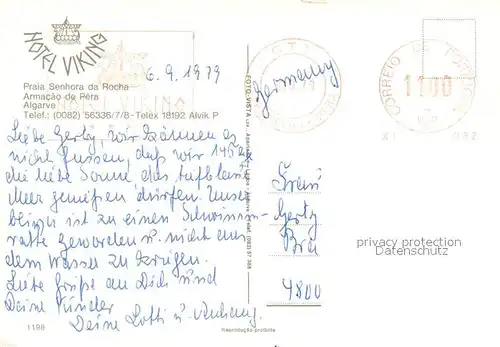 HOTEL VIKING
Praia Senhora da Rocha
Armação de Pêra
Algarve
Telef.: (0082) 56336/7/8 - Telex 18192 Alvik P
6.9.1979
Liebe Gerty, wir können es
nicht fassen, daß wir 14 Tage
die liebe Sonne das tiefblaue
Meer genießen dürfen. Unser
ist zu einen Schwimm-
ratte geworden u. nicht aus
dem Wasser zu kriegen.
Liebe Grüße an Dich und
Deine Kinder
Deine Lotti u. Anhang.
1198
Reprodução proibida
FOTO-VISTA
Germany
CORREIO DE PORTUGAL
1100
Frau
Gerty
4800
privacy protection
Datenschutz